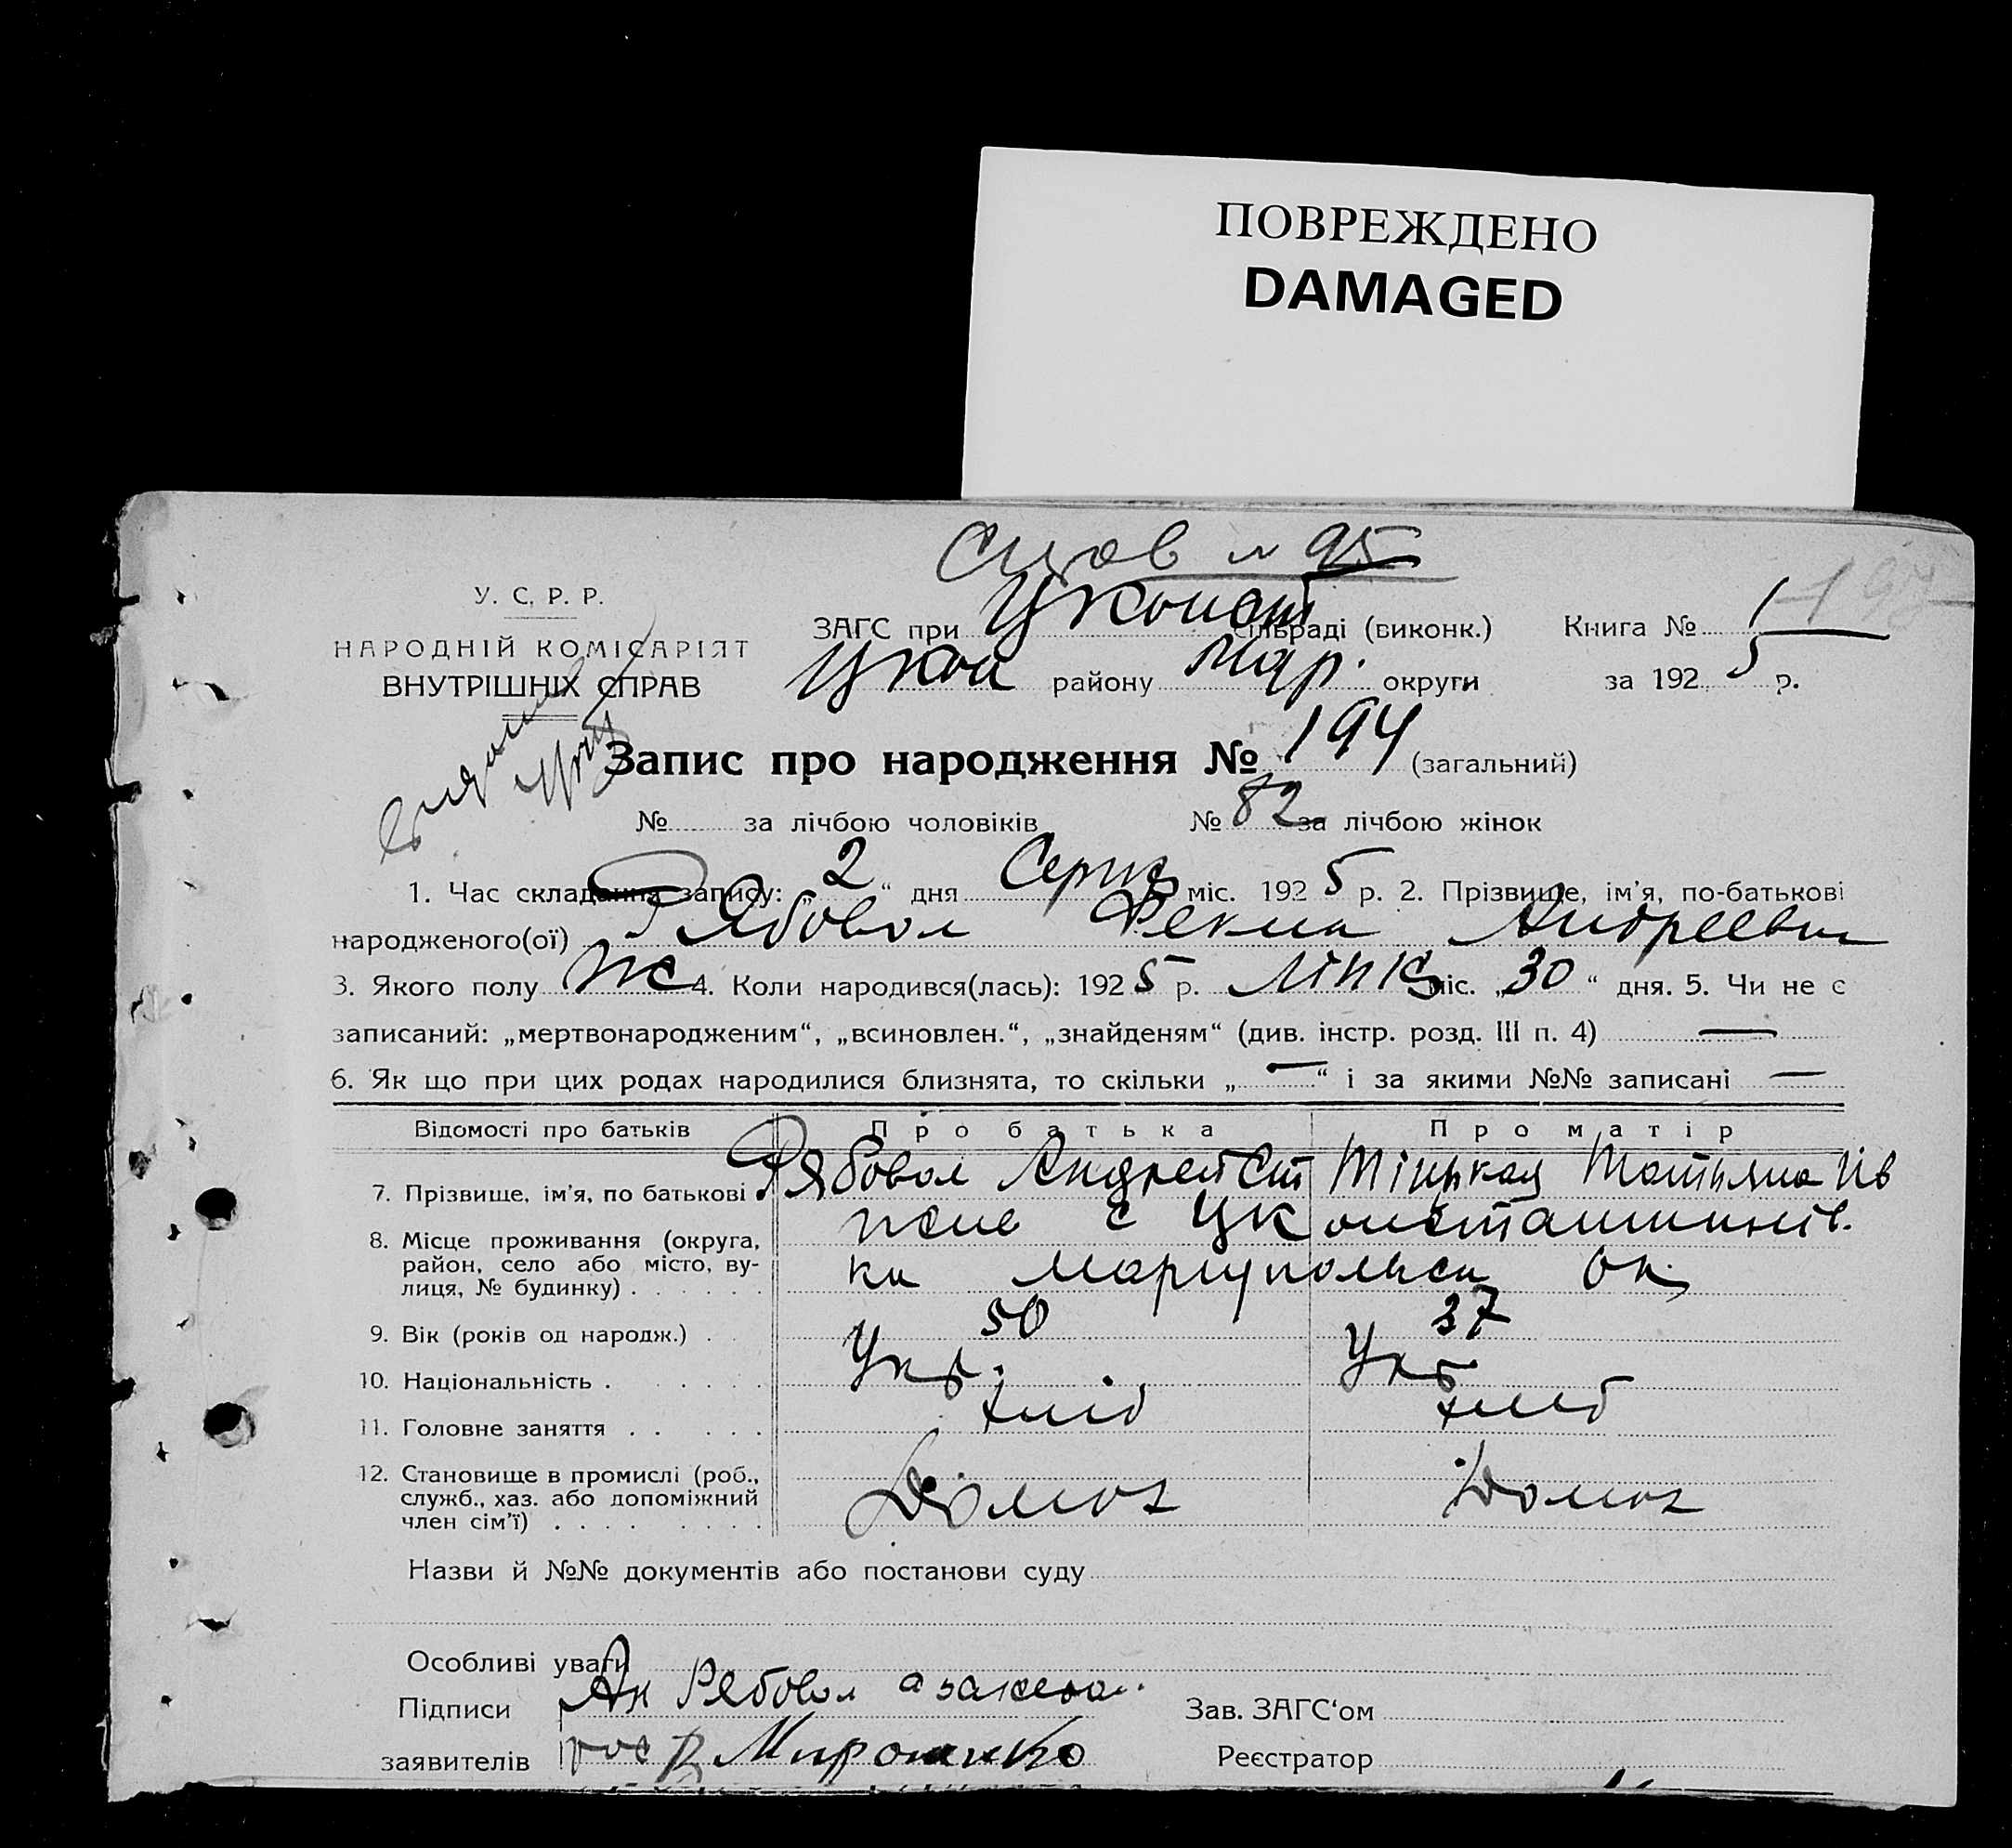 ПОВРЕЖДЕНО
DAMAGED
№ 95
У. С. Р. Р.
НАРОДНІЙ КОМІСАРІЯТ
ВНУТРІШНІХ СПРАВ
ЗАГС при УКонст сільраді (виконк.)
Укон району Мар. округи
Книга № 1
за 1925 р.
Запис про народження № 194 (загальний)
№ за лічбою чоловіків № 82 за лічбою жінок
1. Час складання запису: „2“ дня Серпн міс. 1925 р. 2. Прізвище, ім'я, по-батькові
народженого(ої) Рябовол Фекла Андреевн
3. Якого полу Ж 4. Коли народився(лась): 1925 р. Липн міс. „30“ дня. 5. Чи не є
записаний: „мертвонародженим“, „всиновлен.“, „знайденям“ (див. інстр. розд. III п. 4) —
6. Як що при цих родах народилися близнята, то скільки „—“ і за якими №№ записані —
Відомості про батьків Про батька Про матір
7. Прізвище, ім'я, по батькові Рябовол Андрей Ст Татьяна Ив
8. Місце проживання (округа, район, село або місто, вулиця, № будинку) с УКонстантинів.
ки Мариупольск Ок
9. Вік (років од народж.) 50 37
10. Національність Укр. Укр
11. Головне заняття хліб хлеб
12. Становище в промислі (роб., служб., хаз. або допоміжний член сім'ї) Домох Домох
Назви й №№ документів або постанови суду
Особливі уваги
Підписи Ан Рябовол а за него
заявителів рос Мирошнико
Зав. ЗАГС'ом
Реєстратор